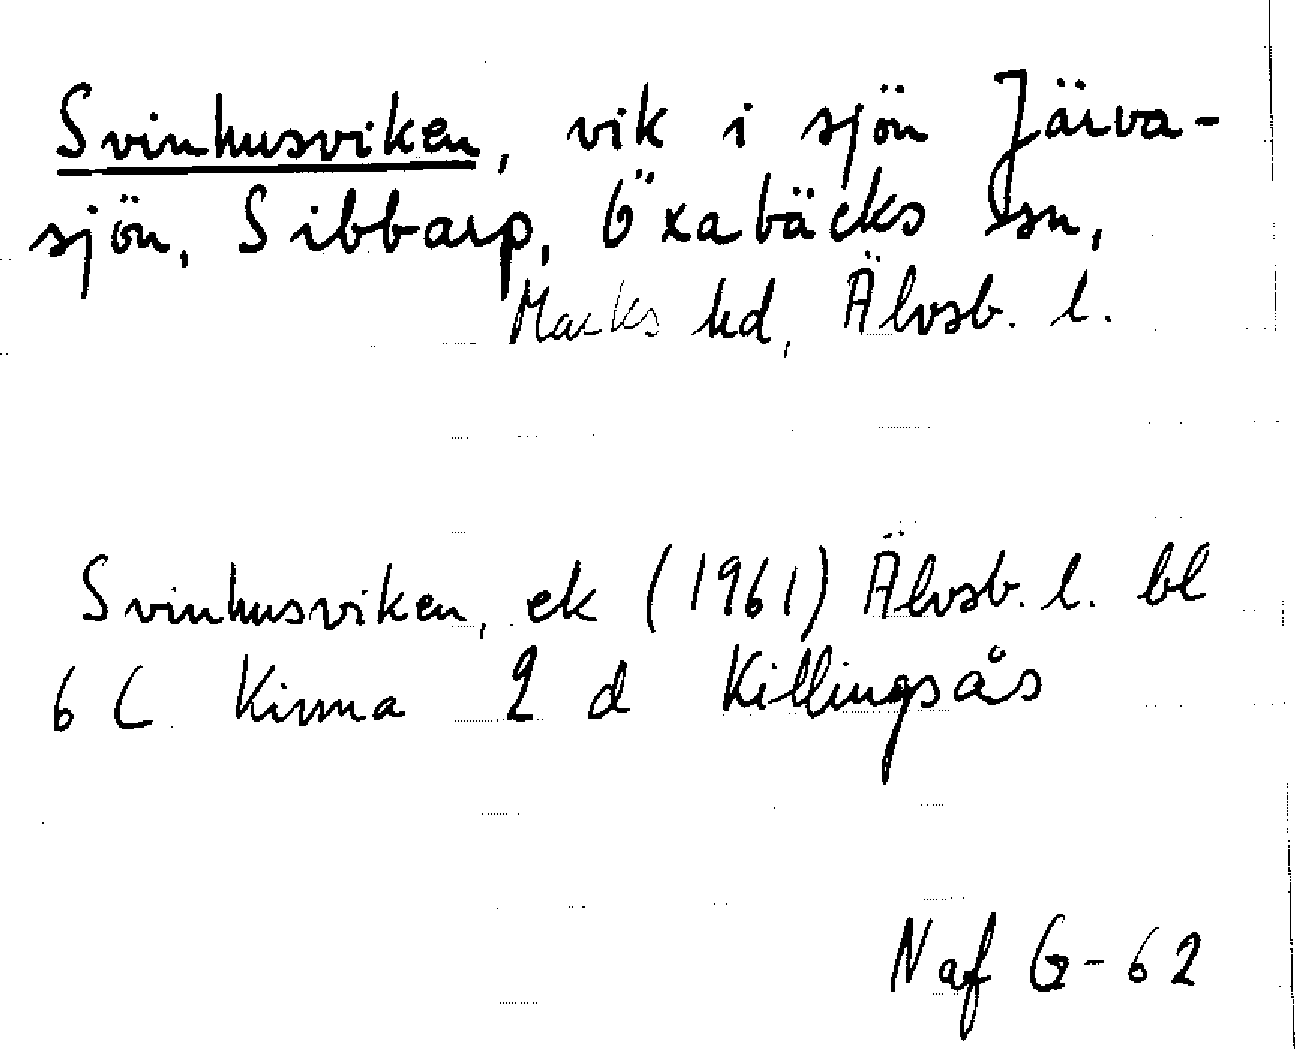 Svinhusviken, vik i sjön Järva-
sjön, Sibbarp, Öxabäcks sn,
Marks hd, Älvsb. l.
Svinhusviken, ek (1961) Älvsb. l. bl
6 C Kinna 2 d Killingsås
Naf G-62